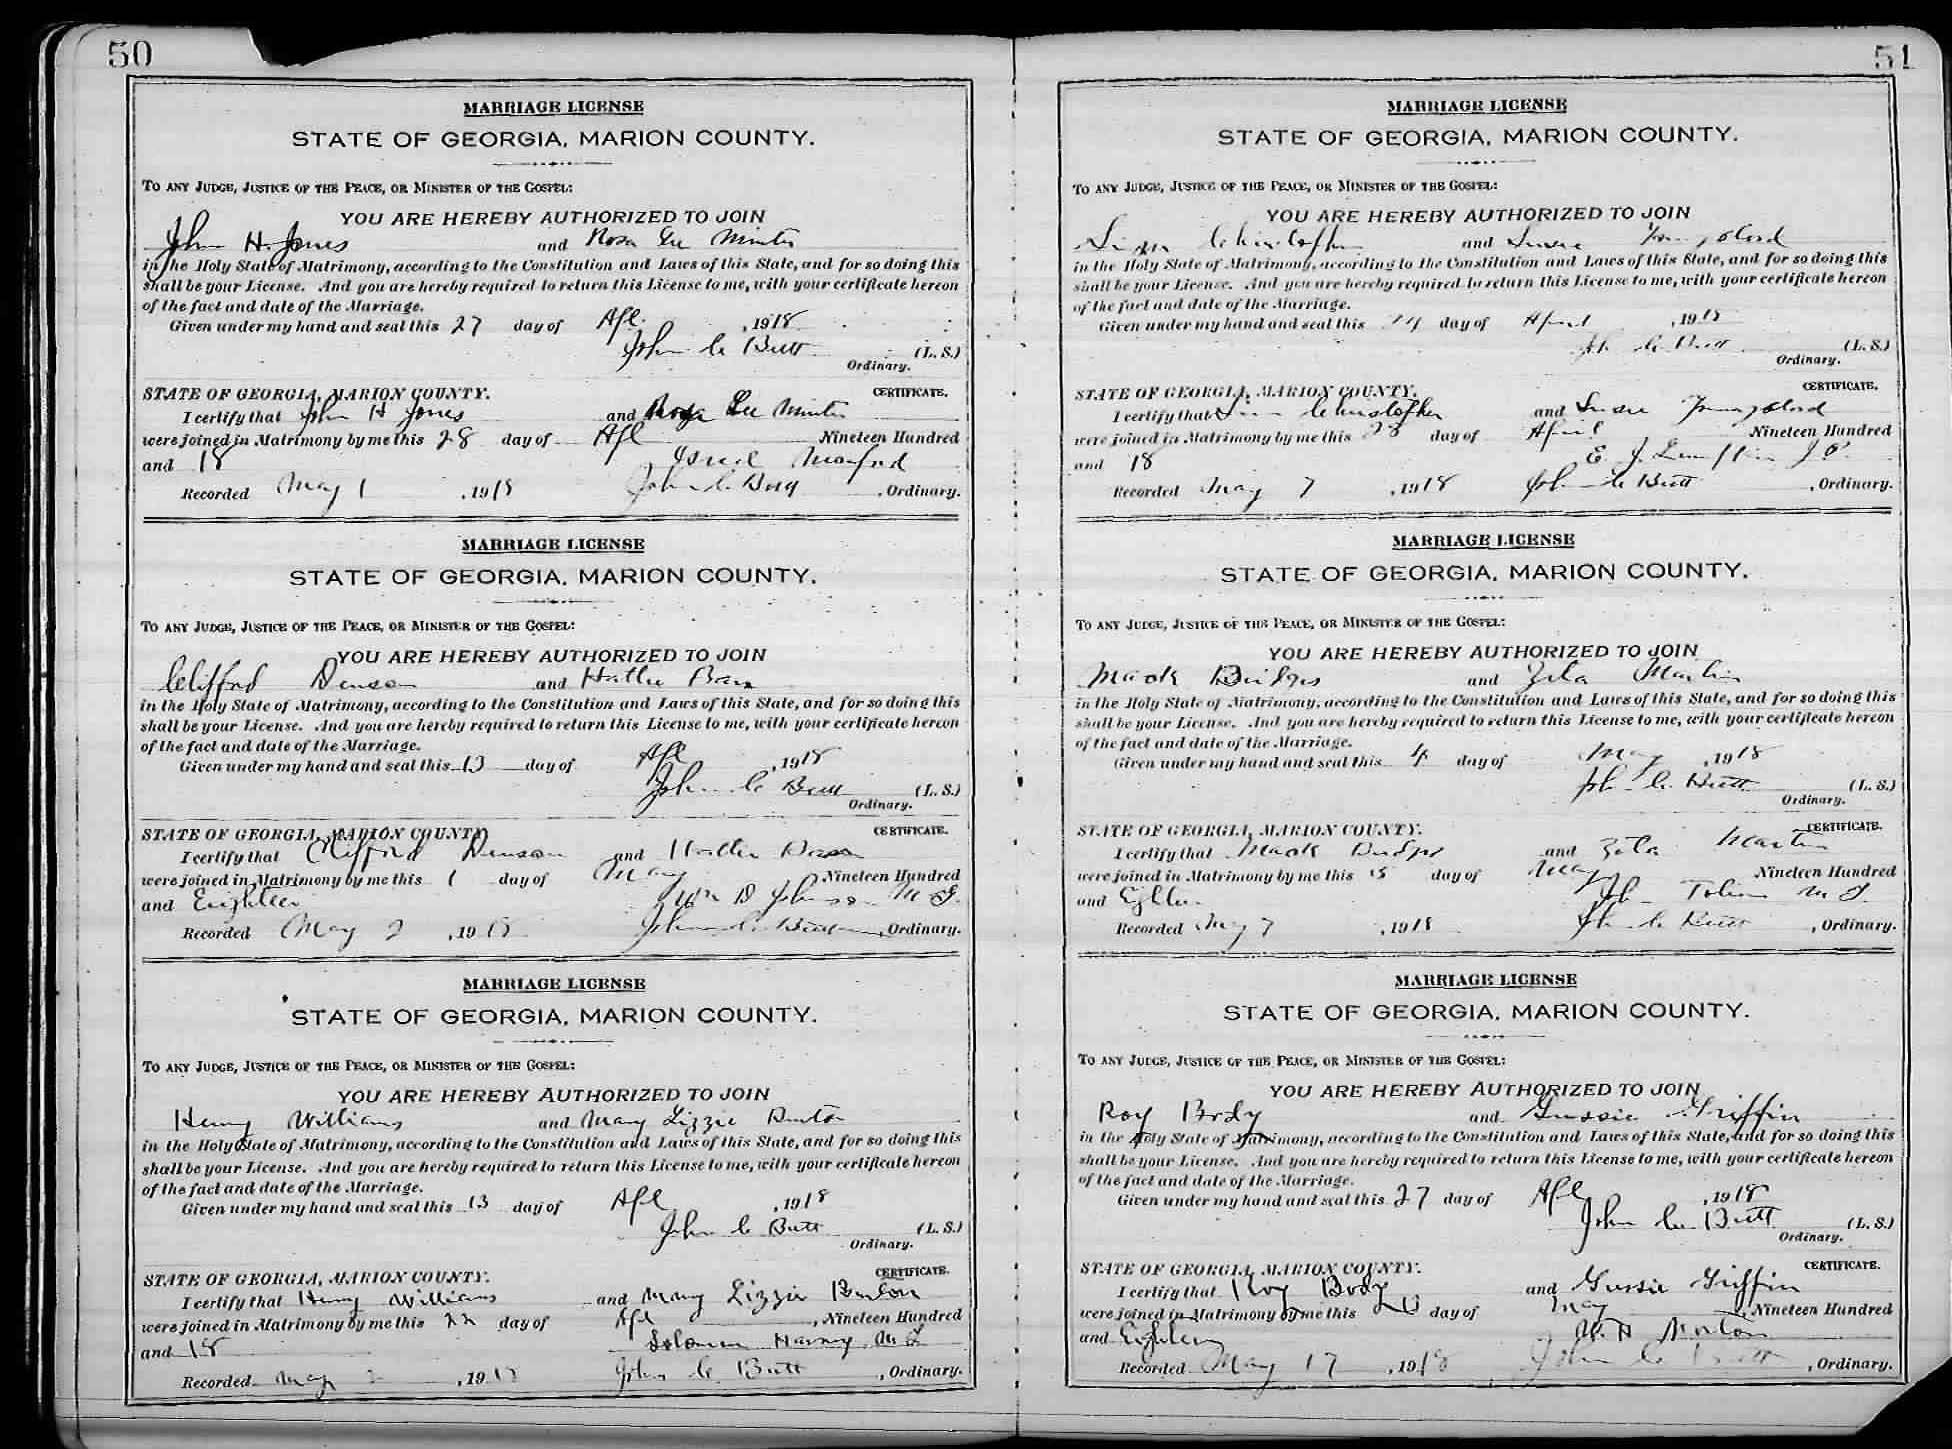 50
MARRIAGE LICENSE
STATE OF GEORGIA, MARION COUNTY.
TO ANY JUDGE, JUSTICE OF THE PEACE, OR MINISTER OF THE GOSPEL:
YOU ARE HEREBY AUTHORIZED TO JOIN
John H. Jones and Rosa Lee Minter
in the Holy State of Matrimony, according to the Constitution and Laws of this State, and for so doing this
shall be your License. And you are hereby required to return this License to me, with your certificate hereon
of the fact and date of the Marriage.
Given under my hand and seal this 27 day of Apl. , 1918
John C Butt (L. S.)
Ordinary.
STATE OF GEORGIA, MARION COUNTY. CERTIFICATE.
I certify that John H Jones and Rosa Lee Minter
were joined in Matrimony by me this 28 day of Apl Nineteen Hundred
and 18
Recorded May 1 , 1918 John C Butt , Ordinary.
MARRIAGE LICENSE
STATE OF GEORGIA, MARION COUNTY.
TO ANY JUDGE, JUSTICE OF THE PEACE, OR MINISTER OF THE GOSPEL:
YOU ARE HEREBY AUTHORIZED TO JOIN
Clifford Denson and Hattie
in the Holy State of Matrimony, according to the Constitution and Laws of this State, and for so doing this
shall be your License. And you are hereby required to return this License to me, with your certificate hereon
of the fact and date of the Marriage.
Given under my hand and seal this 13 day of Apl , 1918
John C Butt (L. S.)
Ordinary.
STATE OF GEORGIA, MARION COUNTY CERTIFICATE.
I certify that Clifford Denson and Hattie
were joined in Matrimony by me this 1 day of May Nineteen Hundred
and Eighteen Wm D Johnson M G.
Recorded May 2 , 1918 John C. Butt , Ordinary.
MARRIAGE LICENSE
STATE OF GEORGIA, MARION COUNTY.
TO ANY JUDGE, JUSTICE OF THE PEACE, OR MINISTER OF THE GOSPEL:
YOU ARE HEREBY AUTHORIZED TO JOIN
Henry Williams and Mary Lizzie Burton
in the Holy State of Matrimony, according to the Constitution and Laws of this State, and for so doing this
shall be your License. And you are hereby required to return this License to me, with your certificate hereon
of the fact and date of the Marriage.
Given under my hand and seal this 13 day of Apl , 1918
John C Butt (L. S.)
Ordinary.
STATE OF GEORGIA, MARION COUNTY. CERTIFICATE.
I certify that Henry Williams and Mary Lizzie Burton
were joined in Matrimony by me this 22 day of Apl , Nineteen Hundred
and 18 Solomon Harvey, M G
Recorded May 2 , 1918 John C. Butt , Ordinary.
51
MARRIAGE LICENSE
STATE OF GEORGIA, MARION COUNTY.
TO ANY JUDGE, JUSTICE OF THE PEACE, OR MINISTER OF THE GOSPEL:
YOU ARE HEREBY AUTHORIZED TO JOIN
Christopher and Susie Youngblood
in the Holy State of Matrimony, according to the Constitution and Laws of this State, and for so doing this
shall be your License. And you are hereby required to return this License to me, with your certificate hereon
of the fact and date of the Marriage.
Given under my hand and seal this day of April , 1918
Jh C. Butt (L. S.)
Ordinary.
STATE OF GEORGIA, MARION COUNTY. CERTIFICATE.
I certify that Christopher and Susie Youngblood
were joined in Matrimony by me this 28 day of April Nineteen Hundred
and 18 E. J. J P.
Recorded May 7 , 1918 John C Butt , Ordinary.
MARRIAGE LICENSE
STATE OF GEORGIA, MARION COUNTY.
TO ANY JUDGE, JUSTICE OF THE PEACE, OR MINISTER OF THE GOSPEL:
YOU ARE HEREBY AUTHORIZED TO JOIN
Mack Bridges and Zela Martin
in the Holy State of Matrimony, according to the Constitution and Laws of this State, and for so doing this
shall be your License. And you are hereby required to return this License to me, with your certificate hereon
of the fact and date of the Marriage.
Given under my hand and seal this 4 day of May , 1918
Joh C. Butt (L. S.)
Ordinary.
STATE OF GEORGIA, MARION COUNTY. CERTIFICATE.
I certify that Mack Bridges and Zela Martin
were joined in Matrimony by me this day of May Nineteen Hundred
and M G.
Recorded May 7 , 1918 Jh C Butt , Ordinary.
MARRIAGE LICENSE
STATE OF GEORGIA, MARION COUNTY.
TO ANY JUDGE, JUSTICE OF THE PEACE, OR MINISTER OF THE GOSPEL:
YOU ARE HEREBY AUTHORIZED TO JOIN
Roy Brdy and Gussie Griffin
in the Holy State of Matrimony, according to the Constitution and Laws of this State, and for so doing this
shall be your License. And you are hereby required to return this License to me, with your certificate hereon
of the fact and date of the Marriage.
Given under my hand and seal this 27 day of Apl , 1918
John C. Butt (L. S.)
Ordinary.
STATE OF GEORGIA, MARION COUNTY. CERTIFICATE.
I certify that Roy Body and Gussie Griffin
were joined in Matrimony by me this day of May , Nineteen Hundred
and Eighteen Norton
Recorded May 17 , 1918 John C Butt , Ordinary.